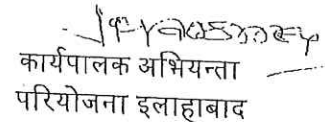 कार्यपालक अभियन्ता
परियोजना इलाहाबाद